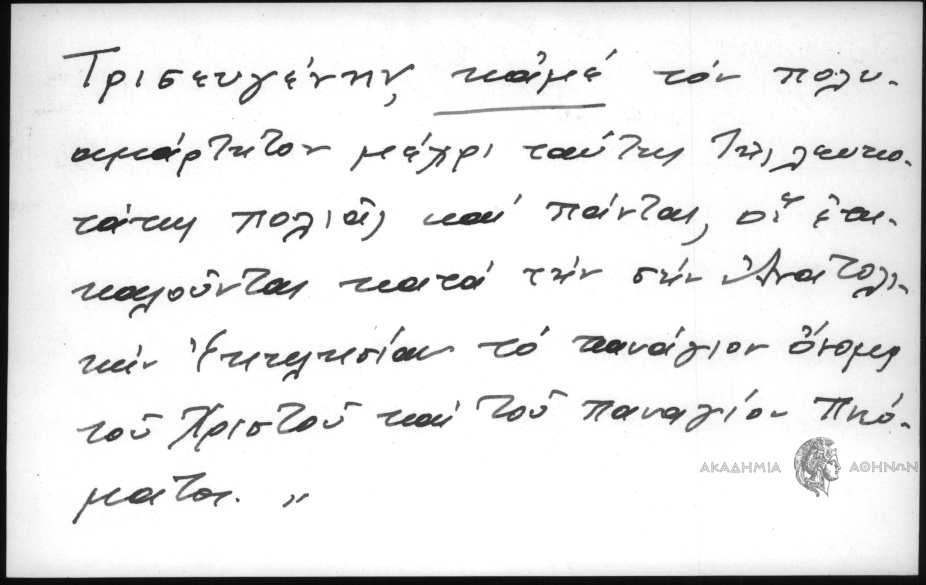 Τρισευγένην, κἀμέ τόν πολυ-
αμάρτητον μέχρι ταύτης τῆς λευκο-
τάτης πολιᾶς καί πάντας, οἵ ἐπι-
καλοῦνται κατά τήν σήν Ἀνατολι-
κήν Ἐκκλησίαν τό πανάγιον ὄνομα
τοῦ Χριστοῦ καί τοῦ παναγίου Πνεύ-
ματος. "
ΑΚΑΔΗΜΙΑ ΑΘΗΝΩΝ